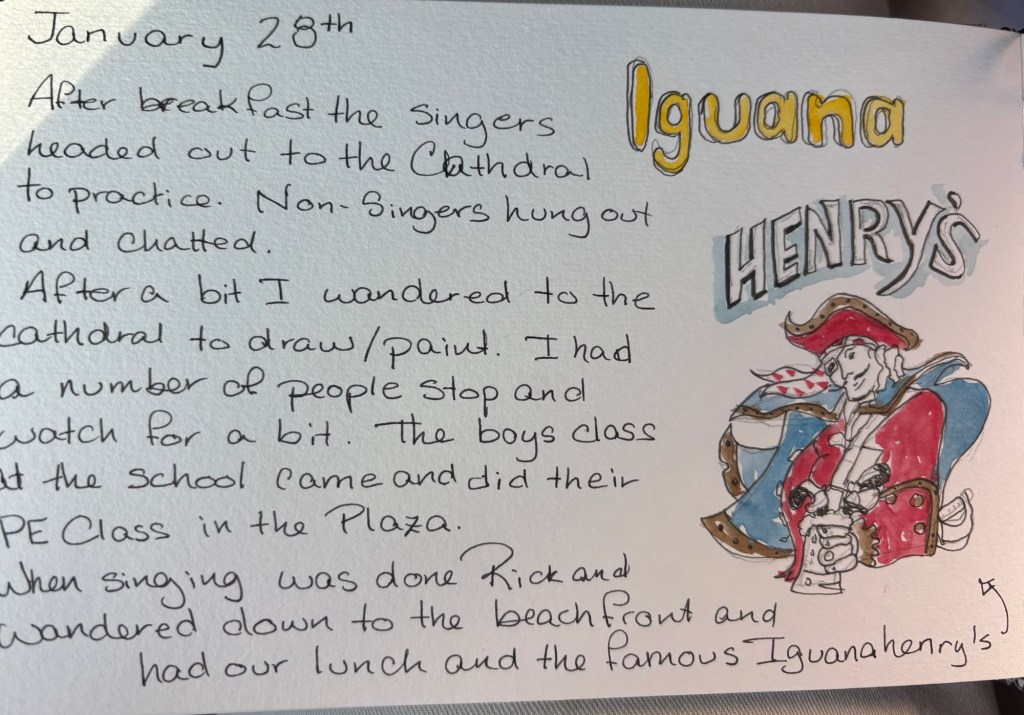 January 28th
After breakfast the singers
headed out to the Cathdral
to practice. Non-Singers hung out
and chatted.
After a bit I wandered to the
cathdral to draw/paint. I had
a number of people stop and
watch for a bit. The boys class
at the school came and did their
PE Class in the Plaza.
When singing was done Rick and
wandered down to the beachfront and
had our lunch and the famous Iguanahenry's
Iguana
HENRY'S